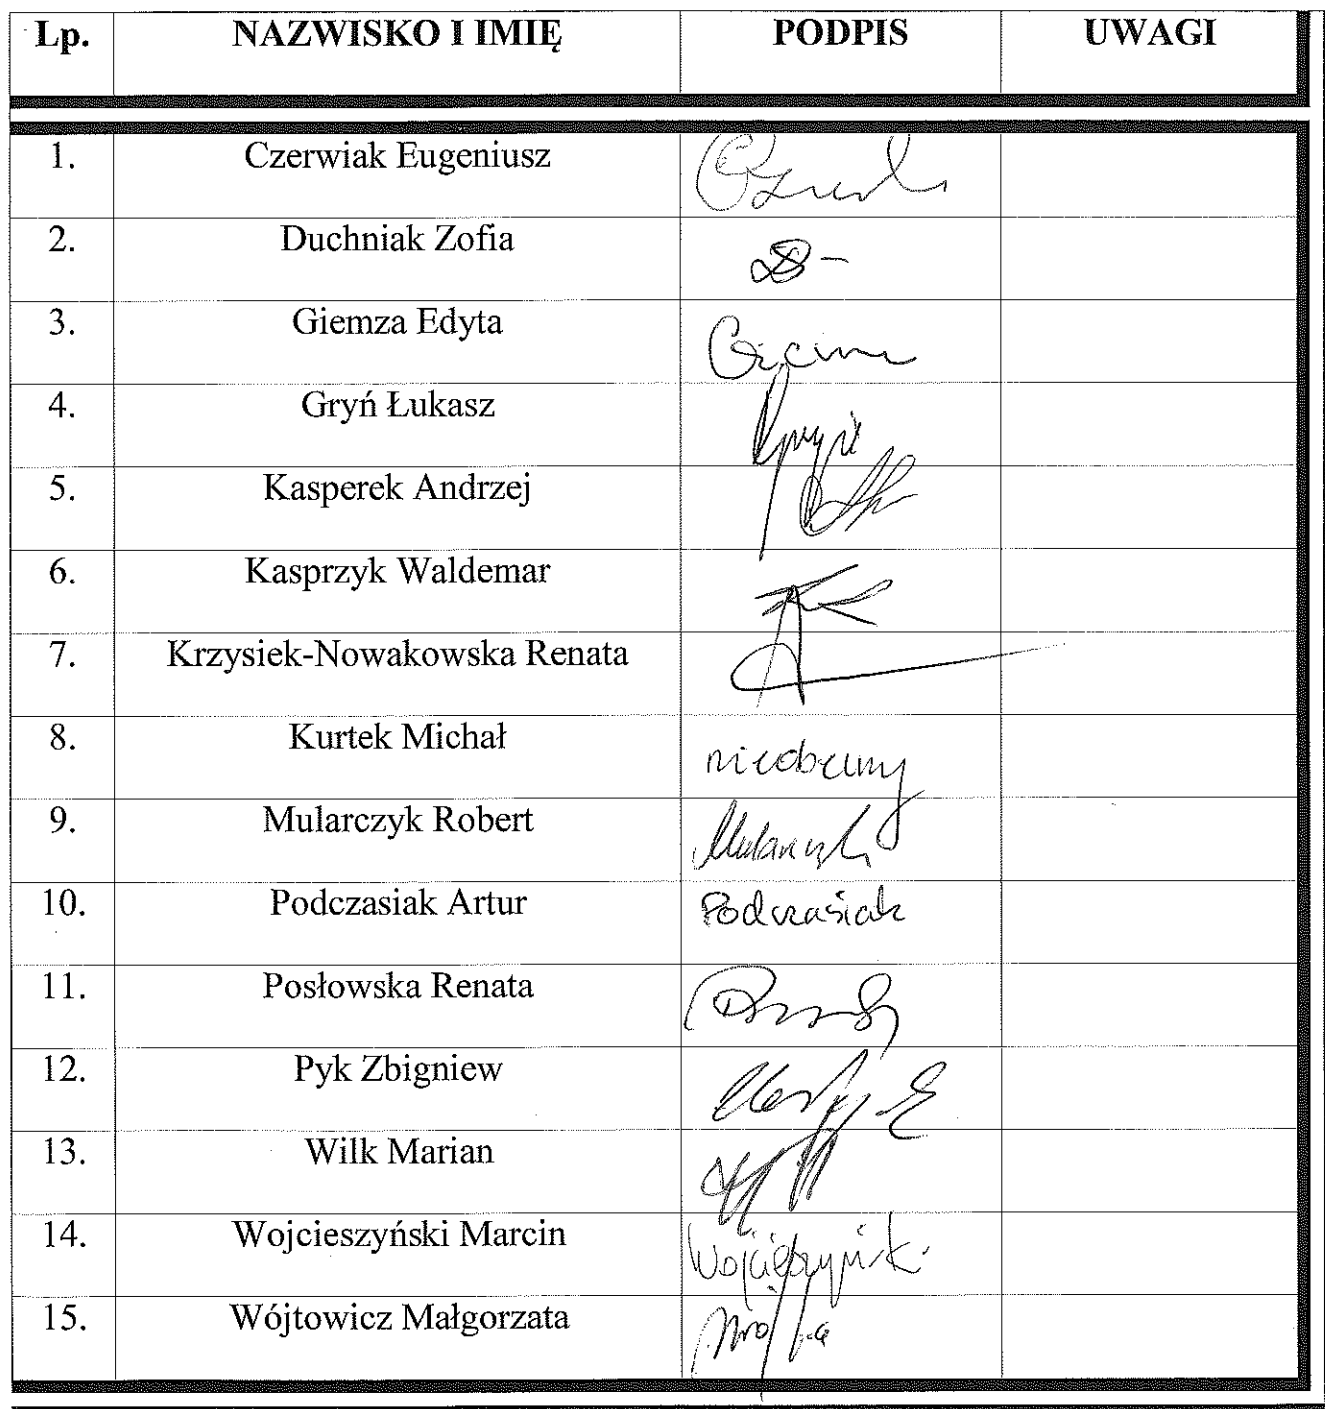 Lp. NAZWISKO I IMIĘ PODPIS UWAGI
1. Czerwiak Eugeniusz
2. Duchniak Zofia
3. Giemza Edyta
4. Gryń Łukasz
5. Kasperek Andrzej
6. Kasprzyk Waldemar
7. Krzysiek-Nowakowska Renata
8. Kurtek Michał nieobecny
9. Mularczyk Robert Mularczyk
10. Podczasiak Artur Podczasiak
11. Posłowska Renata
12. Pyk Zbigniew
13. Wilk Marian
14. Wojcieszyński Marcin Wojcieszyński
15. Wójtowicz Małgorzata